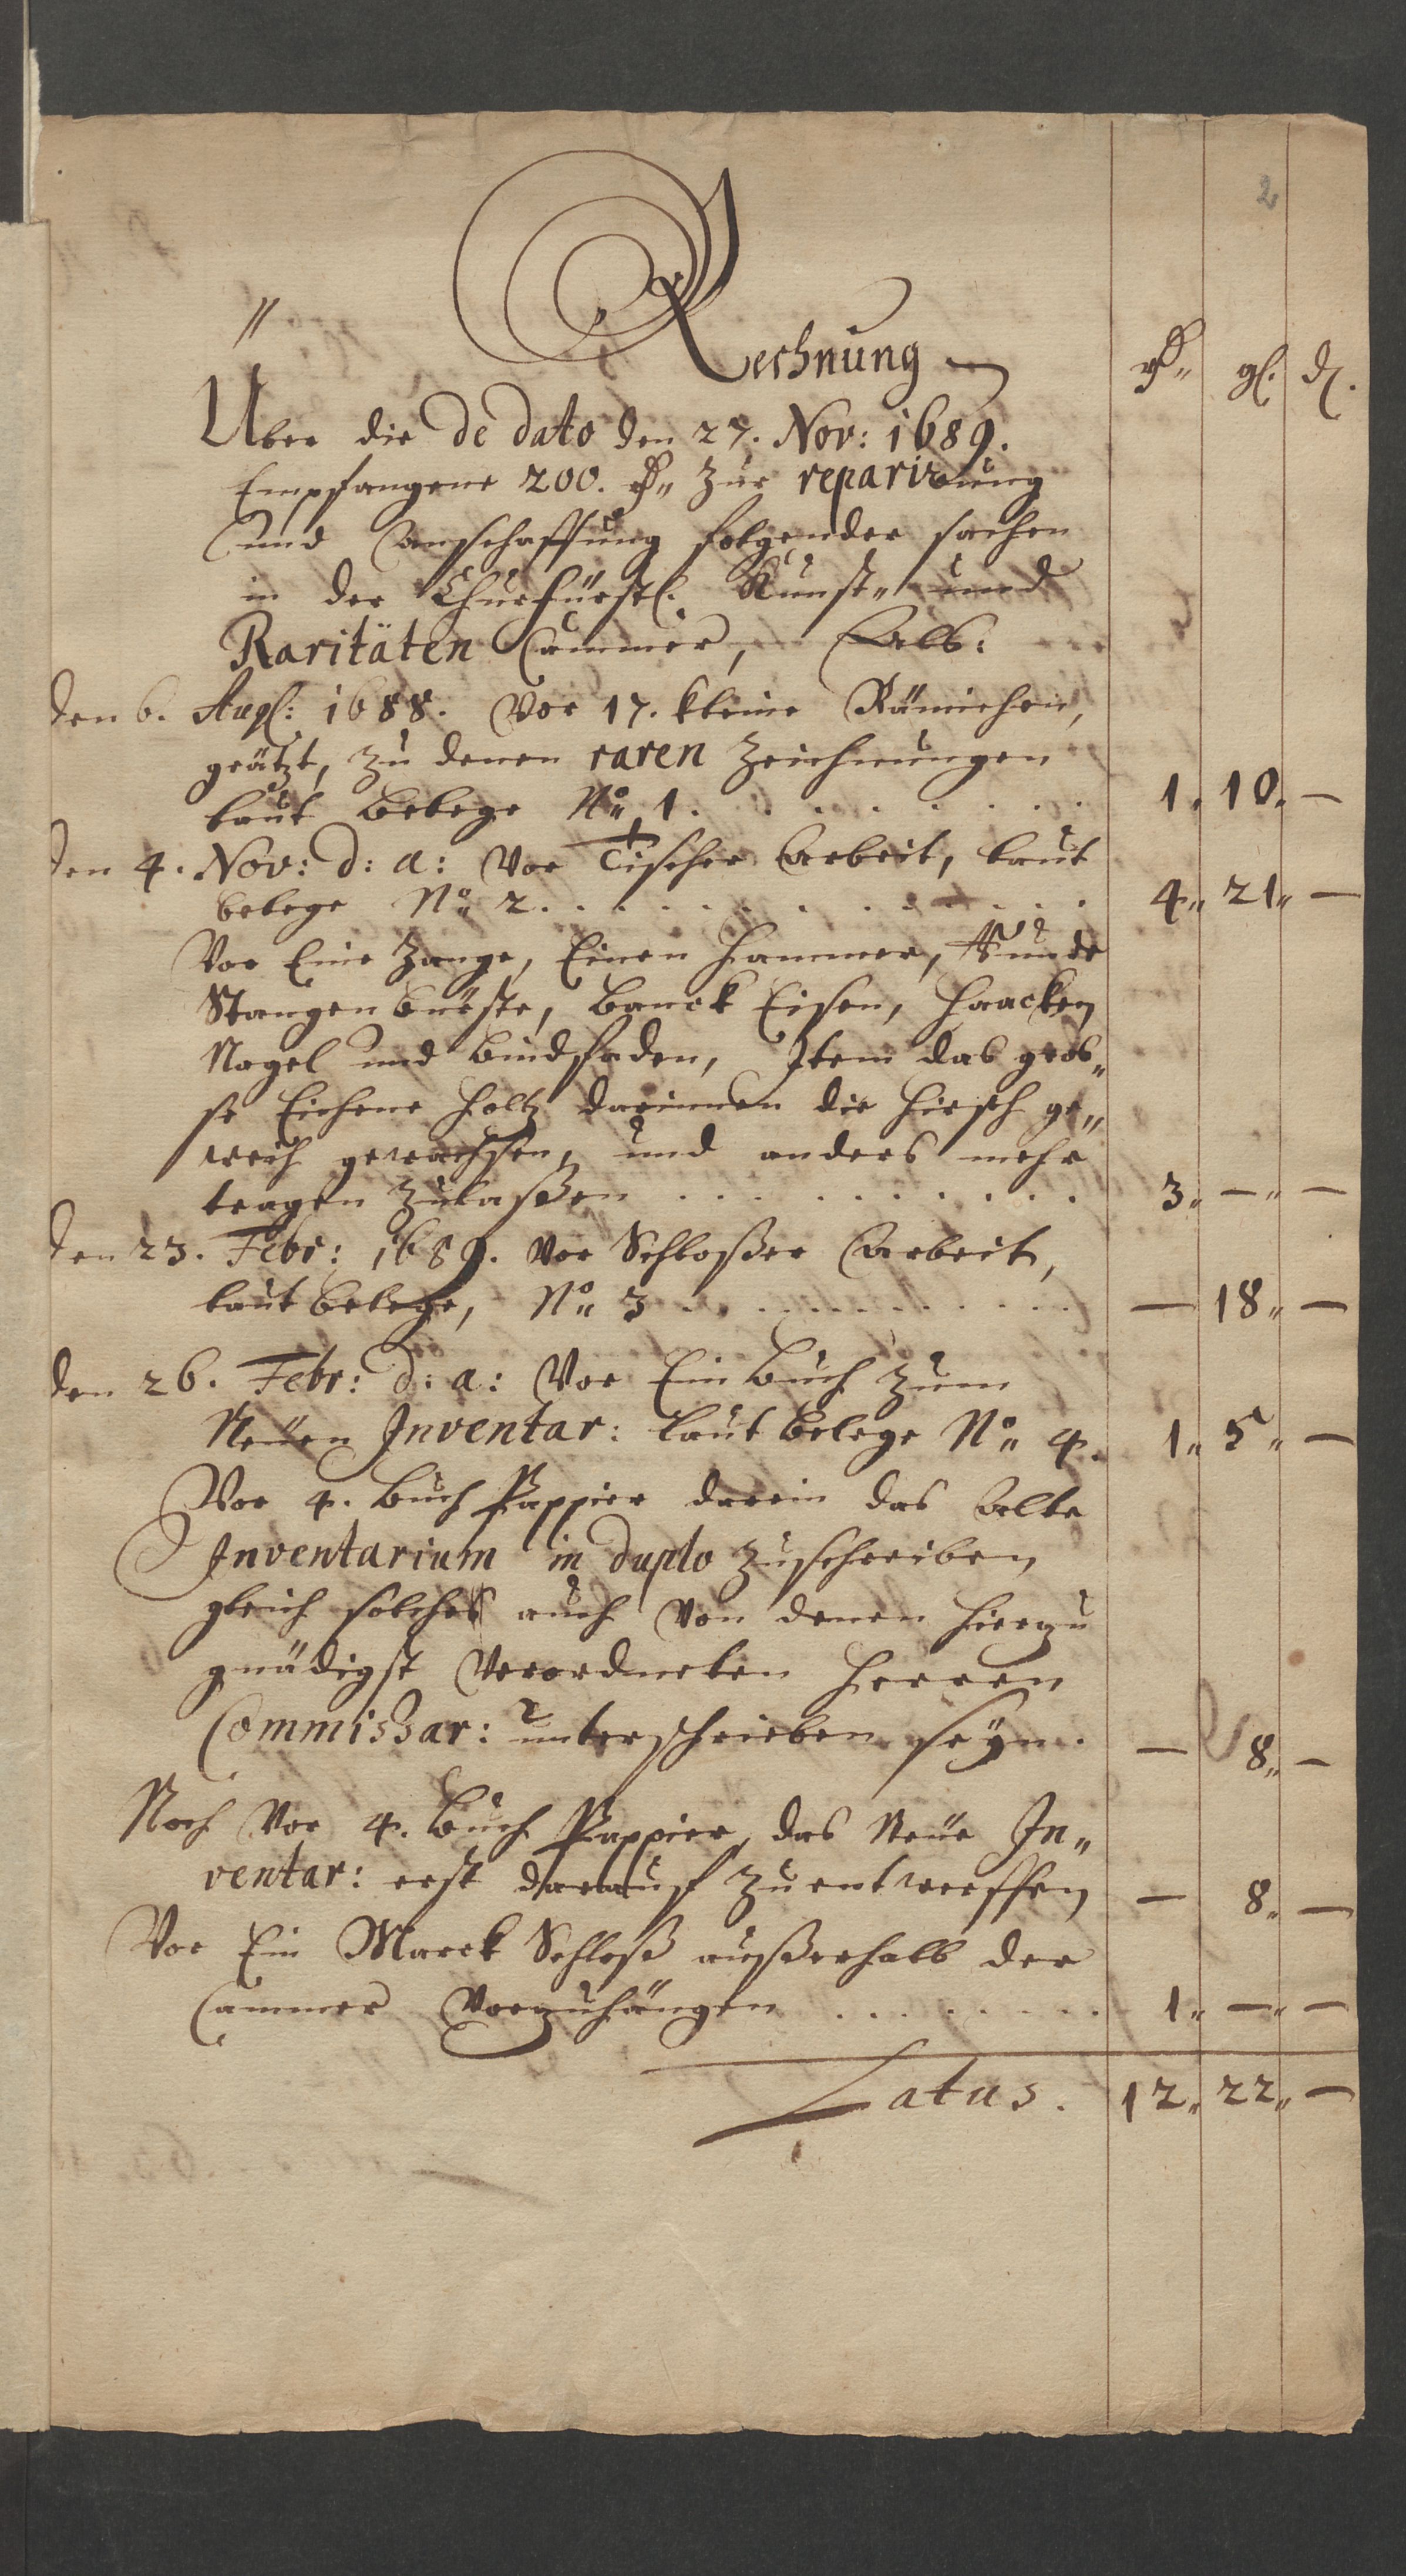 2
Rechnung
rthl. gl. d.
Uber die de dato den 27. Nov: 1689.
Empfangene 200. rthl. zur reparirung
und anschaffung folgender sachen
in der Churfürstl. Kunst- und
Raritäten Cammer, Alls:
den 6. Aug: 1688. Vor 17. kleine Rämichen,
geätzt, zu denen raren Zeichnungen
laut Belege No. 1. 1. 10. —
den 4. Nov: d: a: Vor Tischer Arbeit, laut
belege No. 2. 4. 21. —
Vor Eine Zange, Einen Hammer, Runde
Stangen bürste, Banck Eisen, Haacken
Nagel und Bindfaden, Item das gros-
se Eichene Holtz darinnen die Hirsch ge-
weih gewachsen, und anders mehr
tragen zulaßen 3. — —
den 23. Febr: 1689. Vor Schloßer Arbeit,
laut Belege, No. 3 — 18. —
den 26. Febr: d: a: Vor Ein Buch zum
Neüen Inventar: laut Belege No. 4. 1. 5. —
Vor 4. Buch Pappier darein das Alte
Inventarium in duplo zuschreiben
gleich solches auch von denen hierzu
gnädigst Verordneten Herren
Commissar: unterschrieben seyn. — 8. —
Noch Vor 4. Buch Pappier, das Neüe In-
ventar: erst darauf zu entwerffen — 8. —
Vor Ein Marck Schloß außerhalb der
Cammer Vorzuhängen 1. — —
Latus. 12. 22. —